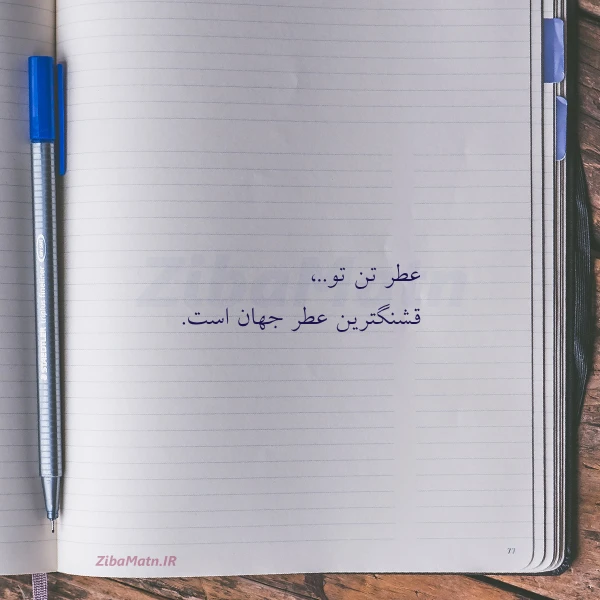 عطر تن تو..،
قشنگترین عطر جهان است.
ZibaMatn
77
ZibaMatn.IR